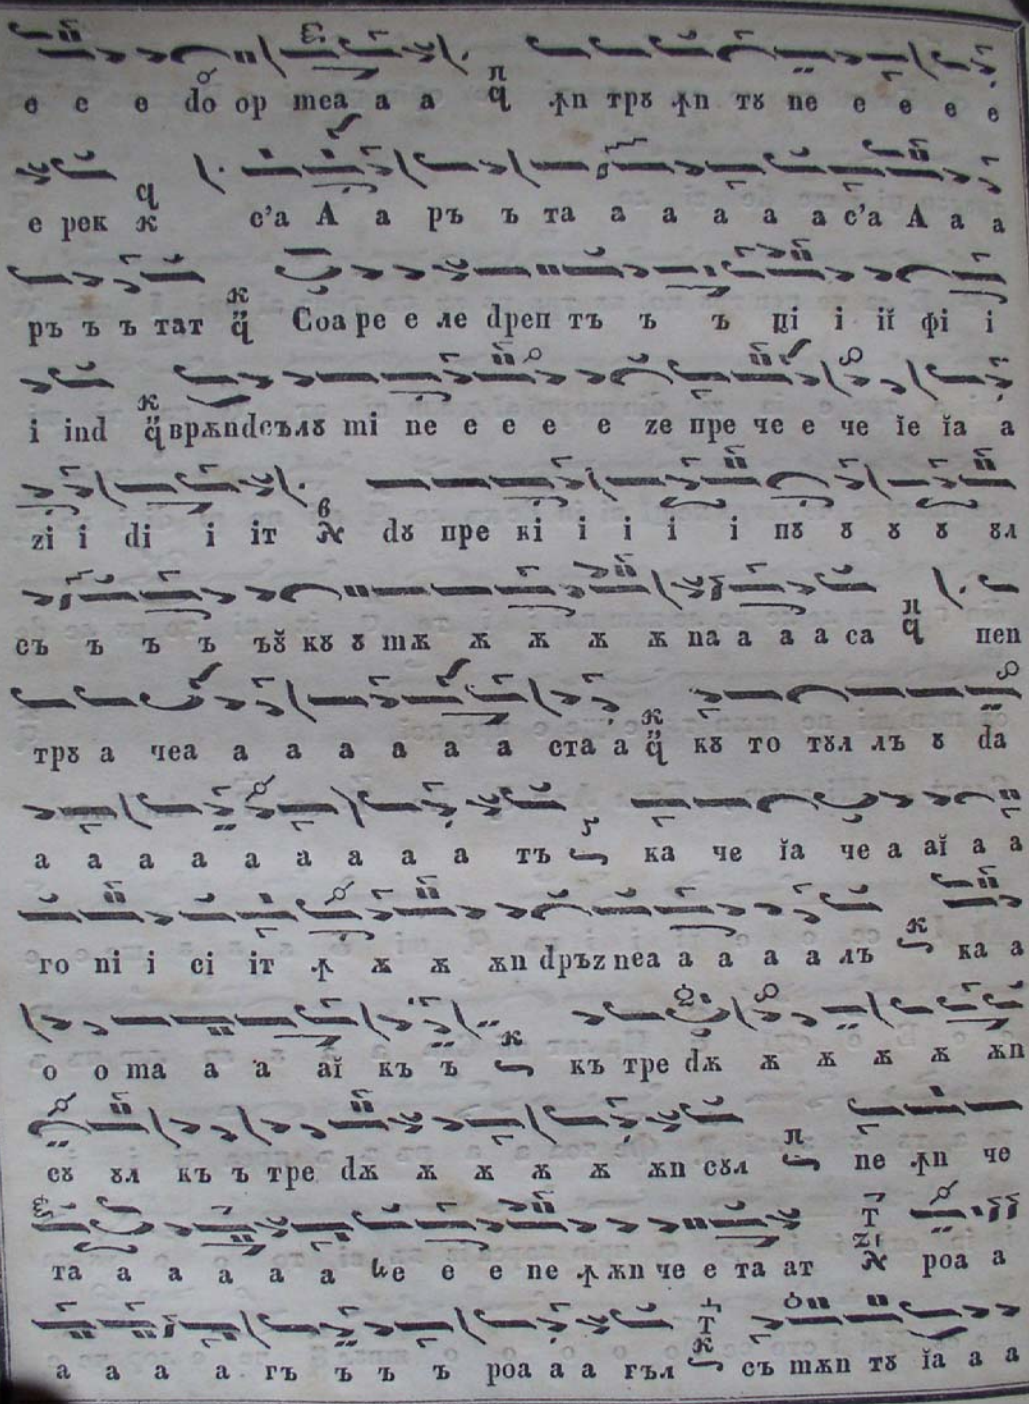 е е е do ор meа а а ꙟn трȣ ꙟn тȣ пе е е е е
е рек к с’а А а ръ ъ та а а а а а с’а А а а
ръ ъ ъ тат Соа ре е ле dреп тъ ъ ъ ші і iĭ фі і
і ind врѫndсълȣ mі пе е е е е zе пре че е че ĭе ĭа а
zі і dі і іт в dȣ пре кі і і і і пȣ ȣ ȣ ȣ ȣл
съ ъ ъ ъ ъȣ̆ кȣ ȣ mѫ ѫ ѫ ѫ ѫ па а а а са пеп
трȣ а чеа а а а а а а ста а кȣ то тȣл лъ ȣ dа
а а а а а а а а а тъ ка че ĭа че а аĭ а а
го пі і сі іт ꙟ ѫ ѫ ѫn dръz пеа а а а а лъ ка а
о о mа а а аĭ къ ъ къ тре dѫ ѫ ѫ ѫ ѫ ѫn
сȣ ȣл къ ъ тре dѫ ѫ ѫ ѫ ѫ ѫn сȣл пе ꙟn че
та а а а а а ше е е пе ꙟ ѫn че е та ат роа а
а а а а гъ ъ ъ ъ роа а а гъл съ mѫn тȣ ĭа а а